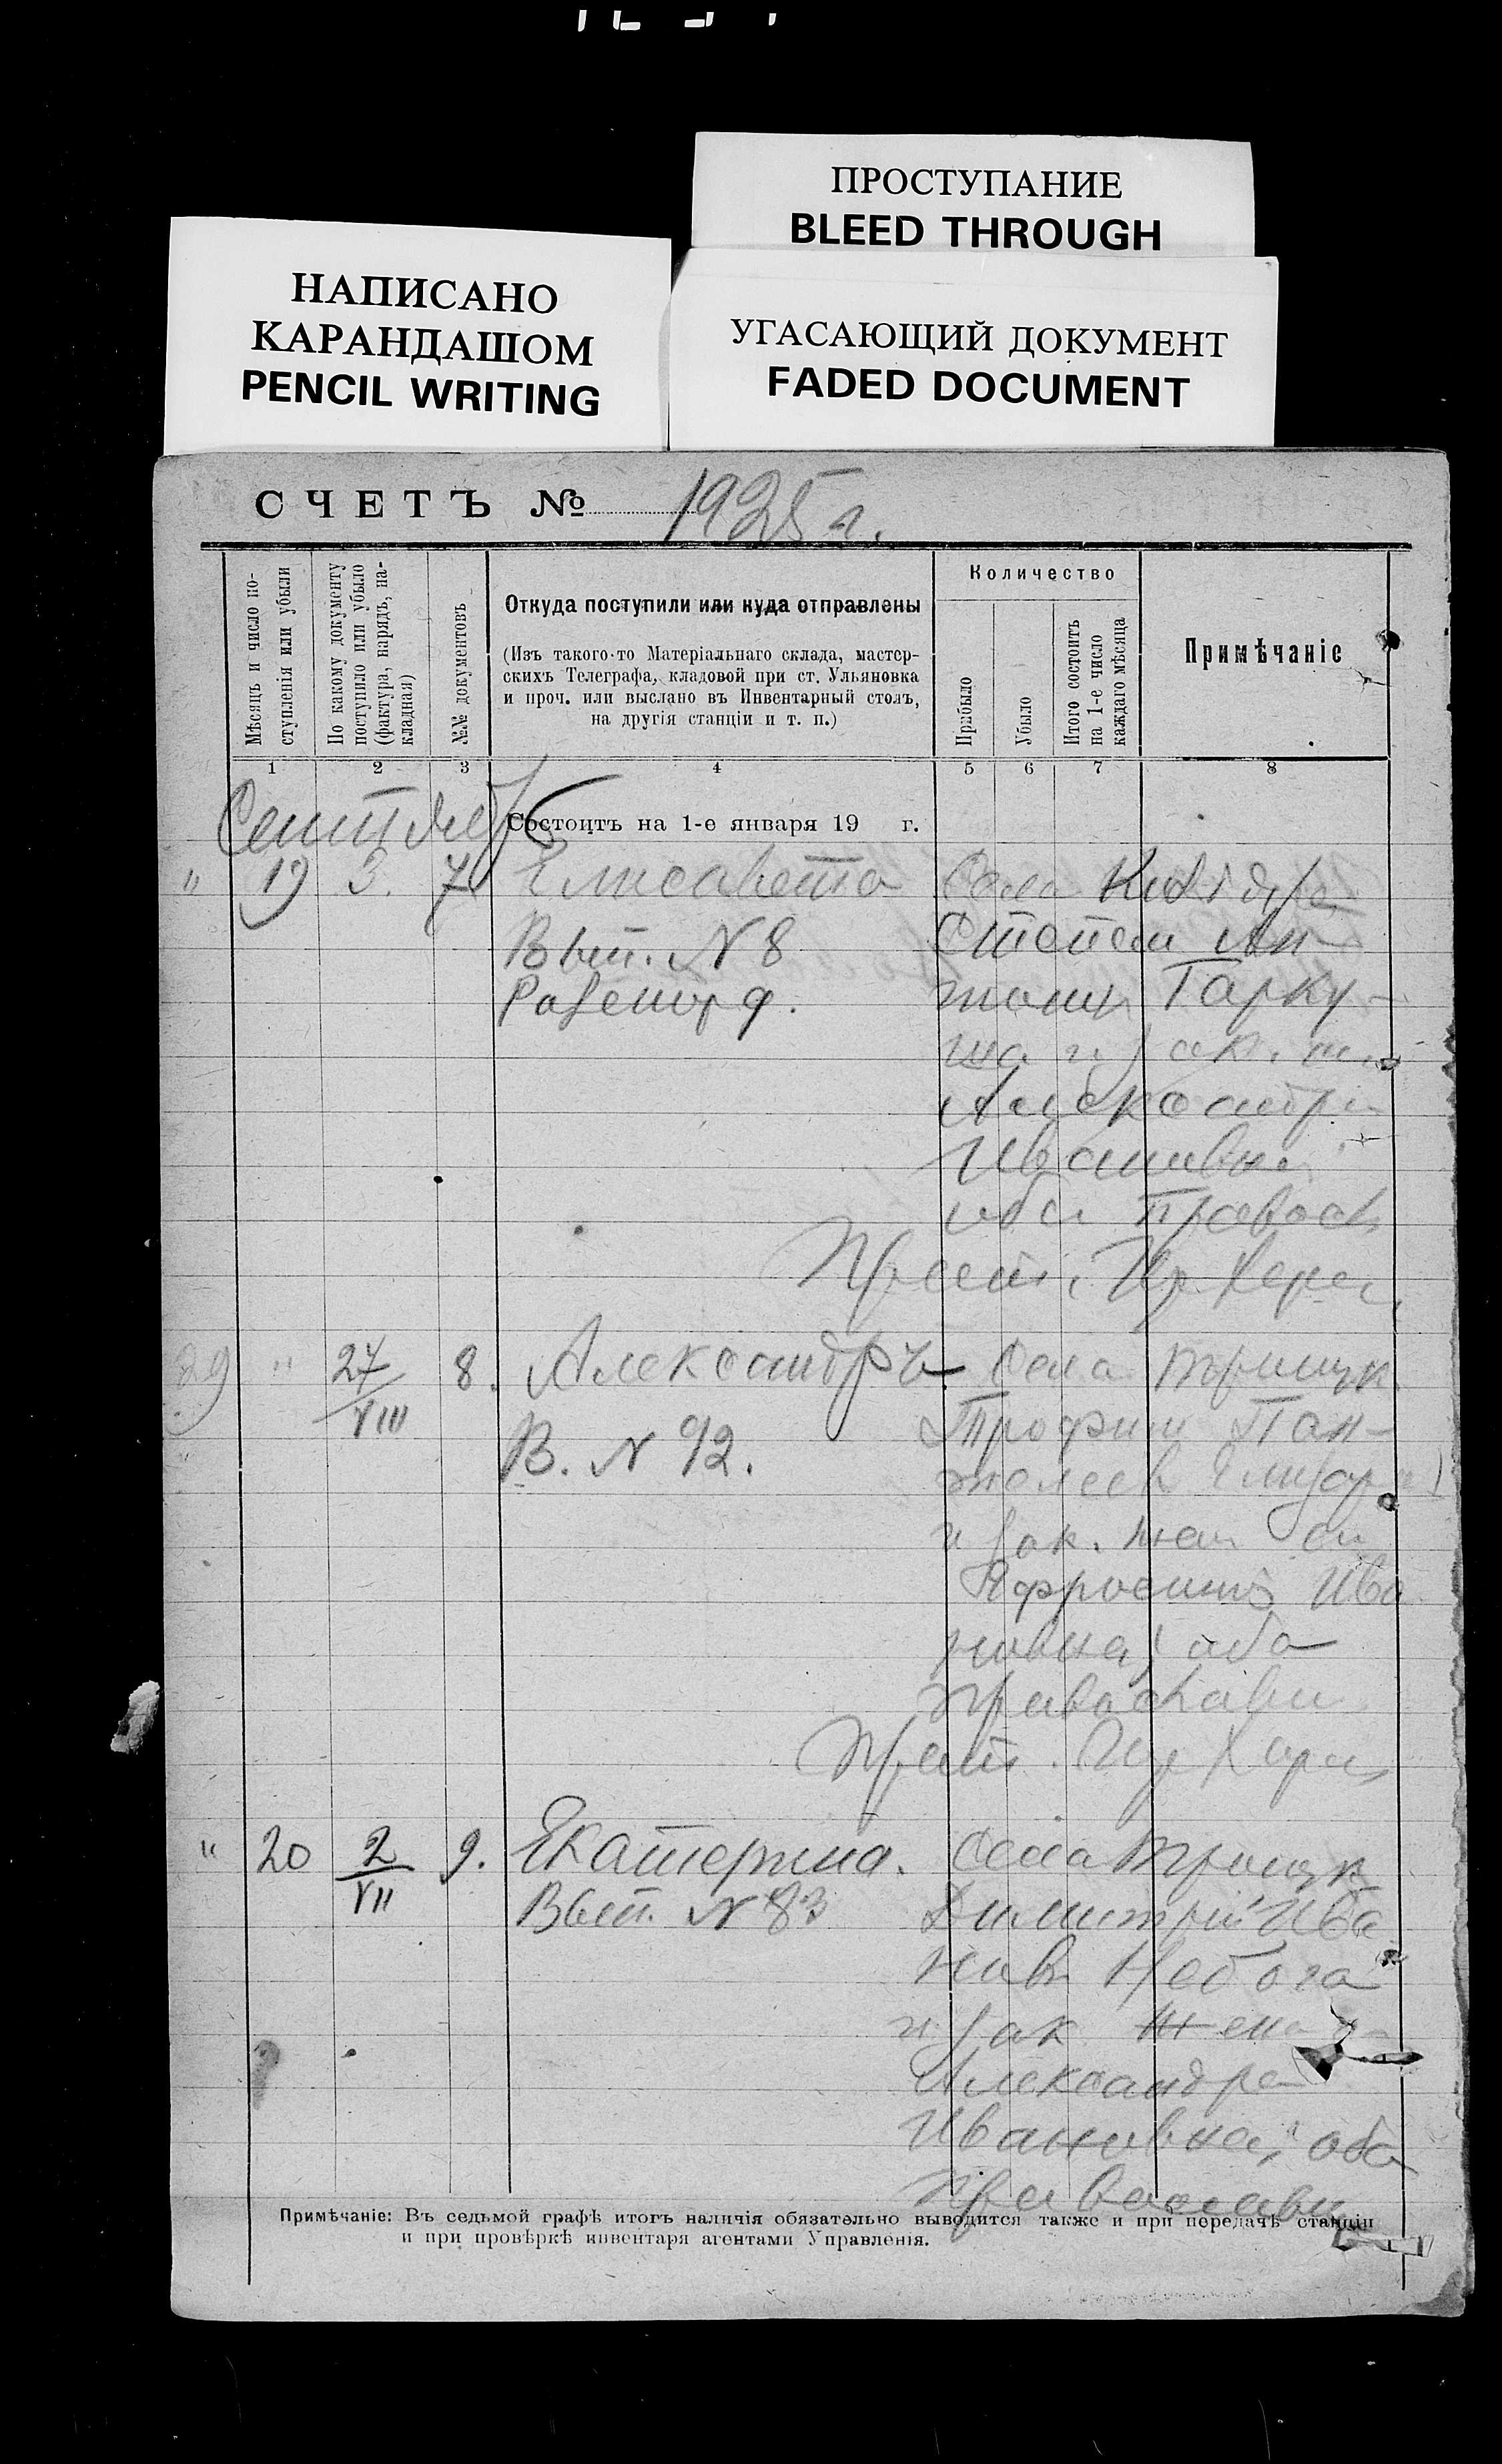 ПРОСТУПАНИЕ
BLEED THROUGH
НАПИСАНО
КАРАНДАШОМ
PENCIL WRITING
УГАСАЮЩИЙ ДОКУМЕНТ
FADED DOCUMENT
СЧЕТЪ № 1925 г.
Мѣсяцъ и число по-
ступленія или убыли
По какому документу
поступило или убыло
(фактура, нарядъ, на-
кладная)
№№ документовъ
Откуда поступили или куда отправлены
(Изъ такого-то Матеріальнаго склада, мастер-
скихъ Телеграфа, кладовой при ст. Ульяновка
и проч. или выслано въ Инвентарный столъ,
на другія станціи и т. п.)
Количество
Прибыло
Убыло
Итого состоитъ
на 1-е число
каждаго мѣсяца
Примѣчаніе
1 2 3 4 5 6 7 8
Сентябрь
Состоитъ на 1-е января 19 г.
" 19 3. 7 Елисавета Села
Вып. N 8 Степан Ан-
тонов Гарку-
ша и зак.
Александра
Ивановна
оба правосл
29 " 27/VIII 8. Александръ Села
В. N 92. Трофим Пан-
и зак. жена
Ива
новна, оба
православн
" 20 2/VII 9. Екатерина. Села
Вып. N 83 Димитрий Ива
нов Небога
и зак жена
Александра
Ивановна, оба
православн
Примѣчаніе: Въ седьмой графѣ итогъ наличія обязательно выводится также и при передачѣ станціи
и при провѣркѣ инвентаря агентами Управленія.